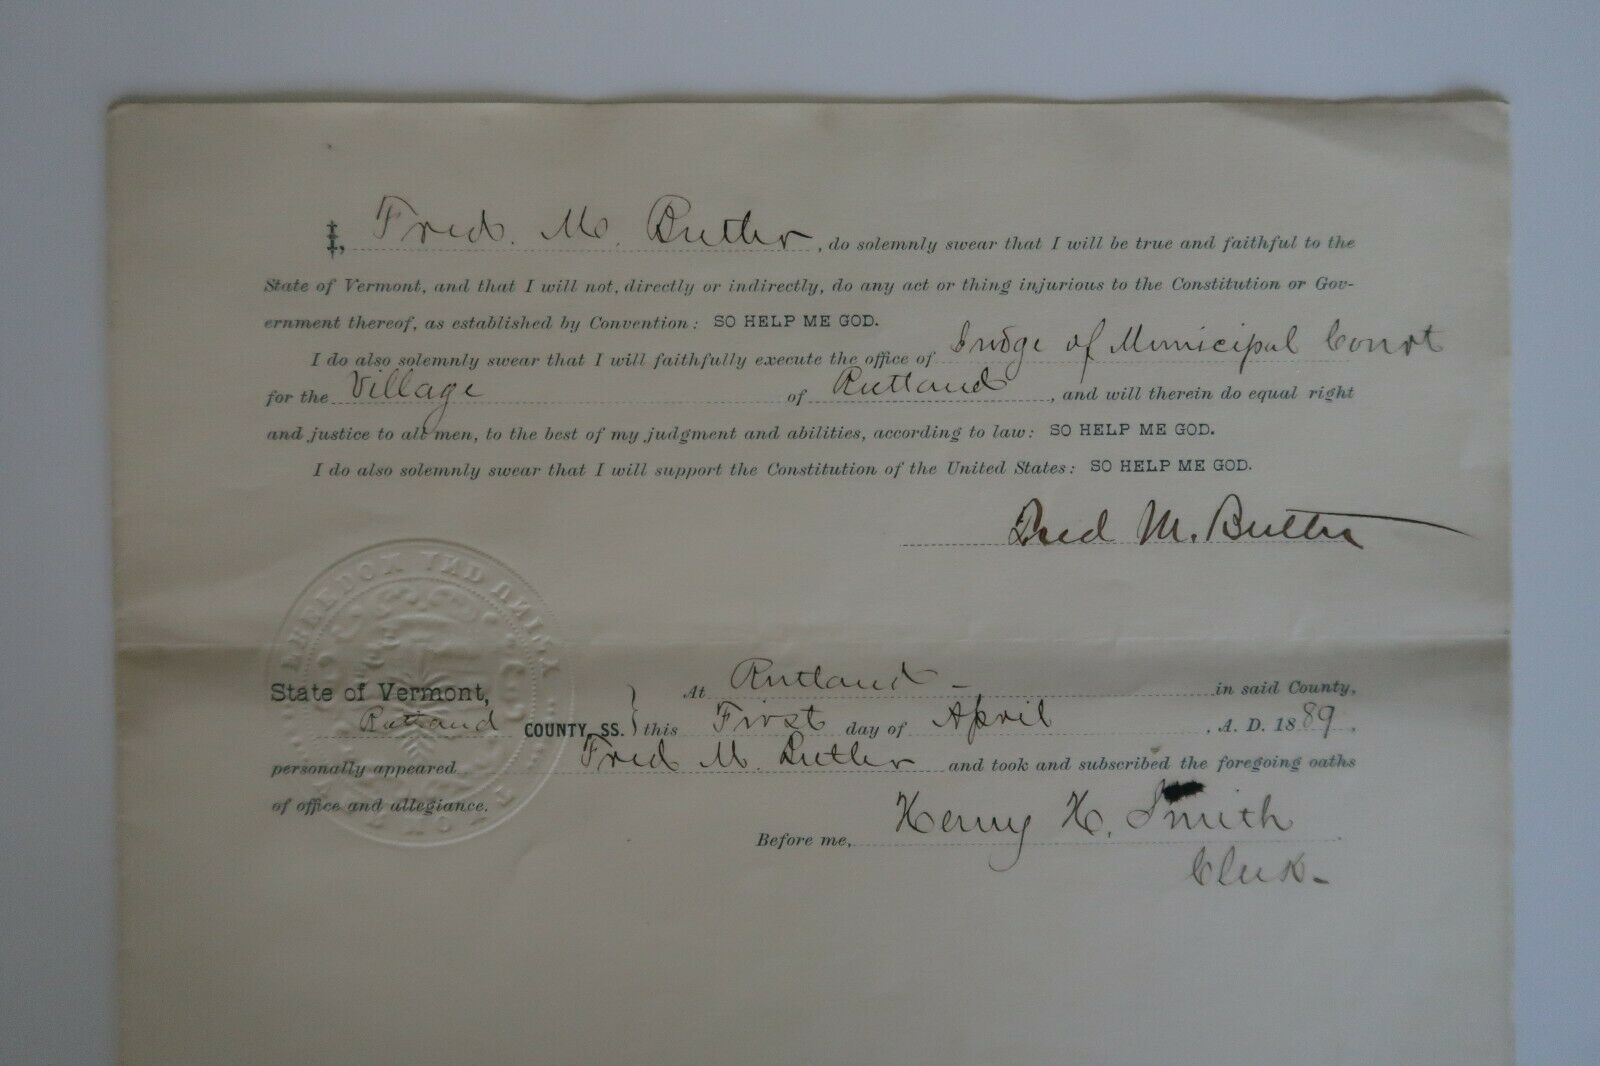 I, Fred. M. Butler, do solemnly swear that I will be true and faithful to the
State of Vermont, and that I will not, directly or indirectly, do any act or thing injurious to the Constitution or Gov-
ernment thereof, as established by Convention: SO HELP ME GOD.
I do also solemnly swear that I will faithfully execute the office of Judge of Municipal Court
for the Village of Rutland, and will therein do equal right
and justice to all men, to the best of my judgment and abilities, according to law: SO HELP ME GOD.
I do also solemnly swear that I will support the Constitution of the United States: SO HELP ME GOD.
Fred M. Butler
FREEDOM AND UNITY
State of Vermont,
Rutland COUNTY, SS.
At Rutland - in said County,
this First day of April, A. D. 1889,
personally appeared Fred M. Butler and took and subscribed the foregoing oaths
of office and allegiance.
Before me, Henry H. Smith
Clerk-